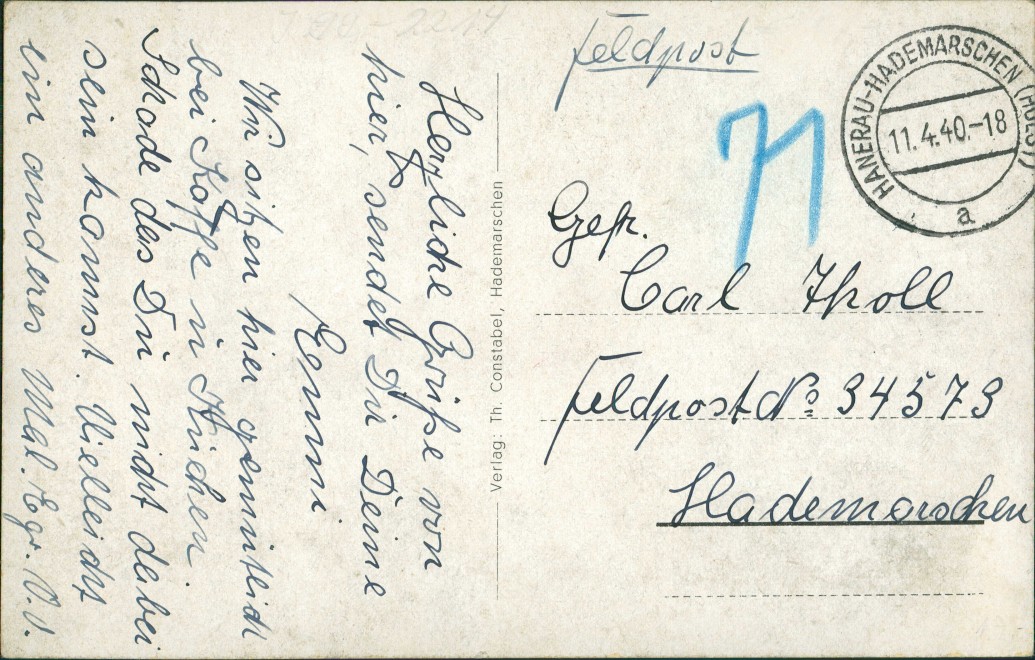 Feldpost
HANERAU-HADEMARSCHEN (HOLST)
11.4.40.-18
a
Gefr.
Carl Tholl
Feldpost No 34573
Hademarschen
Verlag: Th. Constabel, Hademarschen
Herzliche Grüße von
hier, sendet Dir Deine
Emmi
Wir sitzen hier gemütlich
bei Kaffe u Kuchen.
Schade das Du nicht dabei
sein kannst. Vielleicht
ein anderes Mal.